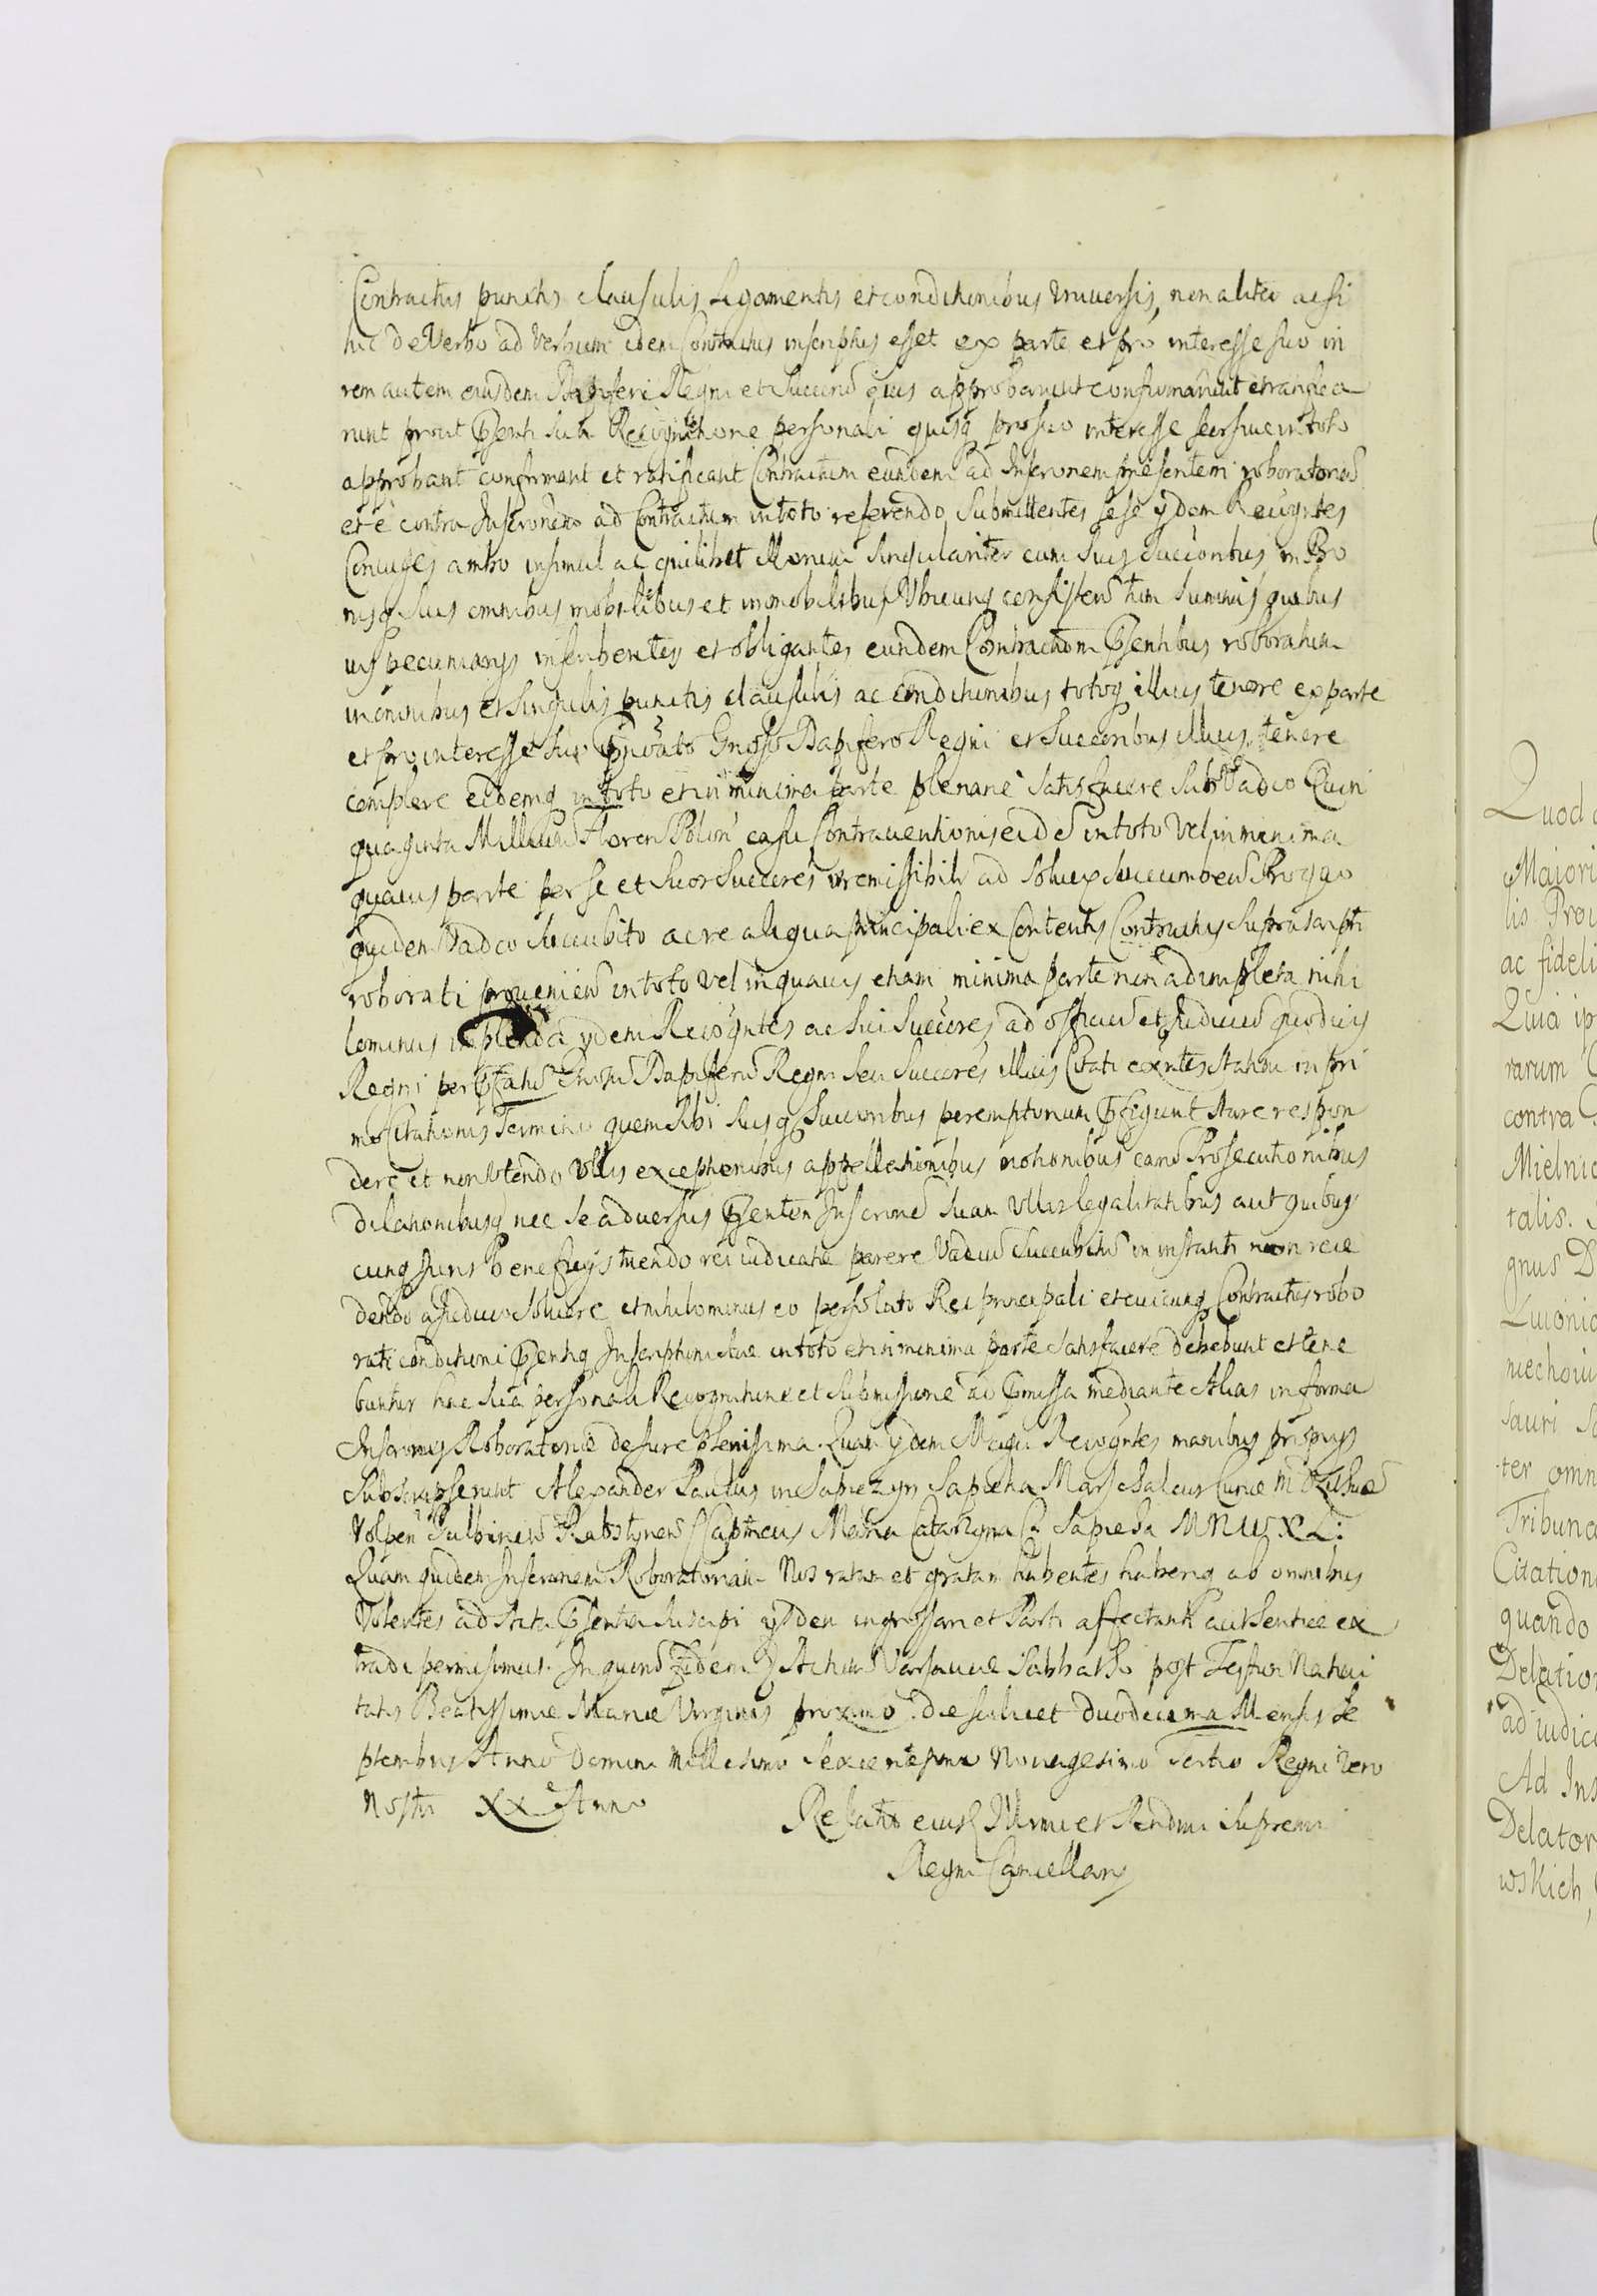 Contractus punctis clausulis Ligamentis et conditionibus vniuersis, non aliter acsi
hic de Verbo ad Verbum idem Contractus inscriptus esset ex parte et pro interesse suo in
rem autem eiusdem Dapiferi Regni et Succeru eius approbarunt confirmarunt et ratifica
runt prout Psenti sua Recognitione personali quisq pro suo interesse seorsiue in toto
approbant confirmant et ratificant Contractum eundem ad Inscronem presentem roboratoriā
et è contra Inscronem ad Contractum in toto referendo Submittentes sese ijdem Recogntes
Coniuges ambo insimul ac quilibet Illorum Singulariter cum Suis Succoribus in Bo
nisq Suis omnibus mobilibus et immobilibus Vbicunq consisten tum Summis quibus
uis pecuniarijs inscribentes et obligantes eundem Contractum Psentibus roboratum
in omnibus et Singulis punctis clausulis ac conditionibus totoq illius tenore ex parte
et pro interesse Suo Gnoso Dapifero Regni et Succoribus illius tenere
complere eidemq in toto et in minima parte plenarie Satisfacere Sub Vadio Quin
quaginta Millium Floren Polon casu Contrauentionis eidē in toto Vel in minima
quauis parte per se et Suos Succeres irremissibili ad Soluen Succumben Pro quo
quidem Vadio Succubito ac re aliqua principali ex Contentis Contractus Suprascripti
roborati prouenien in toto vel in quauis etiam minima parte non adimpleta nihi
lominus implenda ijdem Recogntes ac Sui Succeres ad officiū et Iudiciū quoduis
Regni per Gnosū Dapiferū Regni Seu Succores illius Citati exntes Statim in pri
mo Citationis Termino quem Sibi Suisq Succoribus peremptorium Pfigunt Stare respon
dere et non Vtendo Vllis exceptionibus appellationibus motionibus earū Prosecutionibus
dilationibusq nec Se aduersus Psentem Inscronē Suam Vllis legalitatibus aut quibus
cunq Iuris beneficijs tuendo rei iudicatæ parere Vadiū Succubitū in instanti non rece
dendo a Iudicio Soluere et nihilominus eo persoluto Rei principali et cuicunq Contractus robo
rati conditioni Psentiq Inscriptioni Suæ in toto et in minima parte Satisfacere debebunt et tene
buntur hac Sua personali Recognitione et Submissione ad Pmissa mediante Alias in forma
Inscronis Roboratoriæ de Iure plenissima. Quam ijdem Magci Recogntes manibus proprijs
Subscripserunt Alexander Paulus in Sapiezyn Sapieha Marschalcus Curiæ M D Lithuæ
Volpen Rabstynen Capitneus Maria Catarzyna Sapieha M N W X L:
Quam quidem Inscronem Roboratoriam Nos ratam et gratam habentes haberiq ab omnibus
Volentes ad Acta Psentia Suscipi ijsdem ingrossari et Parti affectanti authentice ex
tradi permisimus. In quorū fidem Actum Varsauiæ Sabbatho post Festum Natiui
tatis Beatissimæ Mariæ Virginis proximo die scilicet duodecima Mensis Se
ptembris Anno Domini Millesimo Sexcentesimo Nonagesimo Tertio Regni vero
Nostri XX Anno
Relatio eiusd Illrmi et Rendmi Supremi
Regni Cancellarij
Quod
Maiori
lis Prou
ac fideli
Quia ip
rarum
contra
Mielnic
talis.
gnus D
niechow
sauri
ter omn
Tribuna
Citation
quando
Delation
ad iudic
Ad Ins
Delator
wskich,